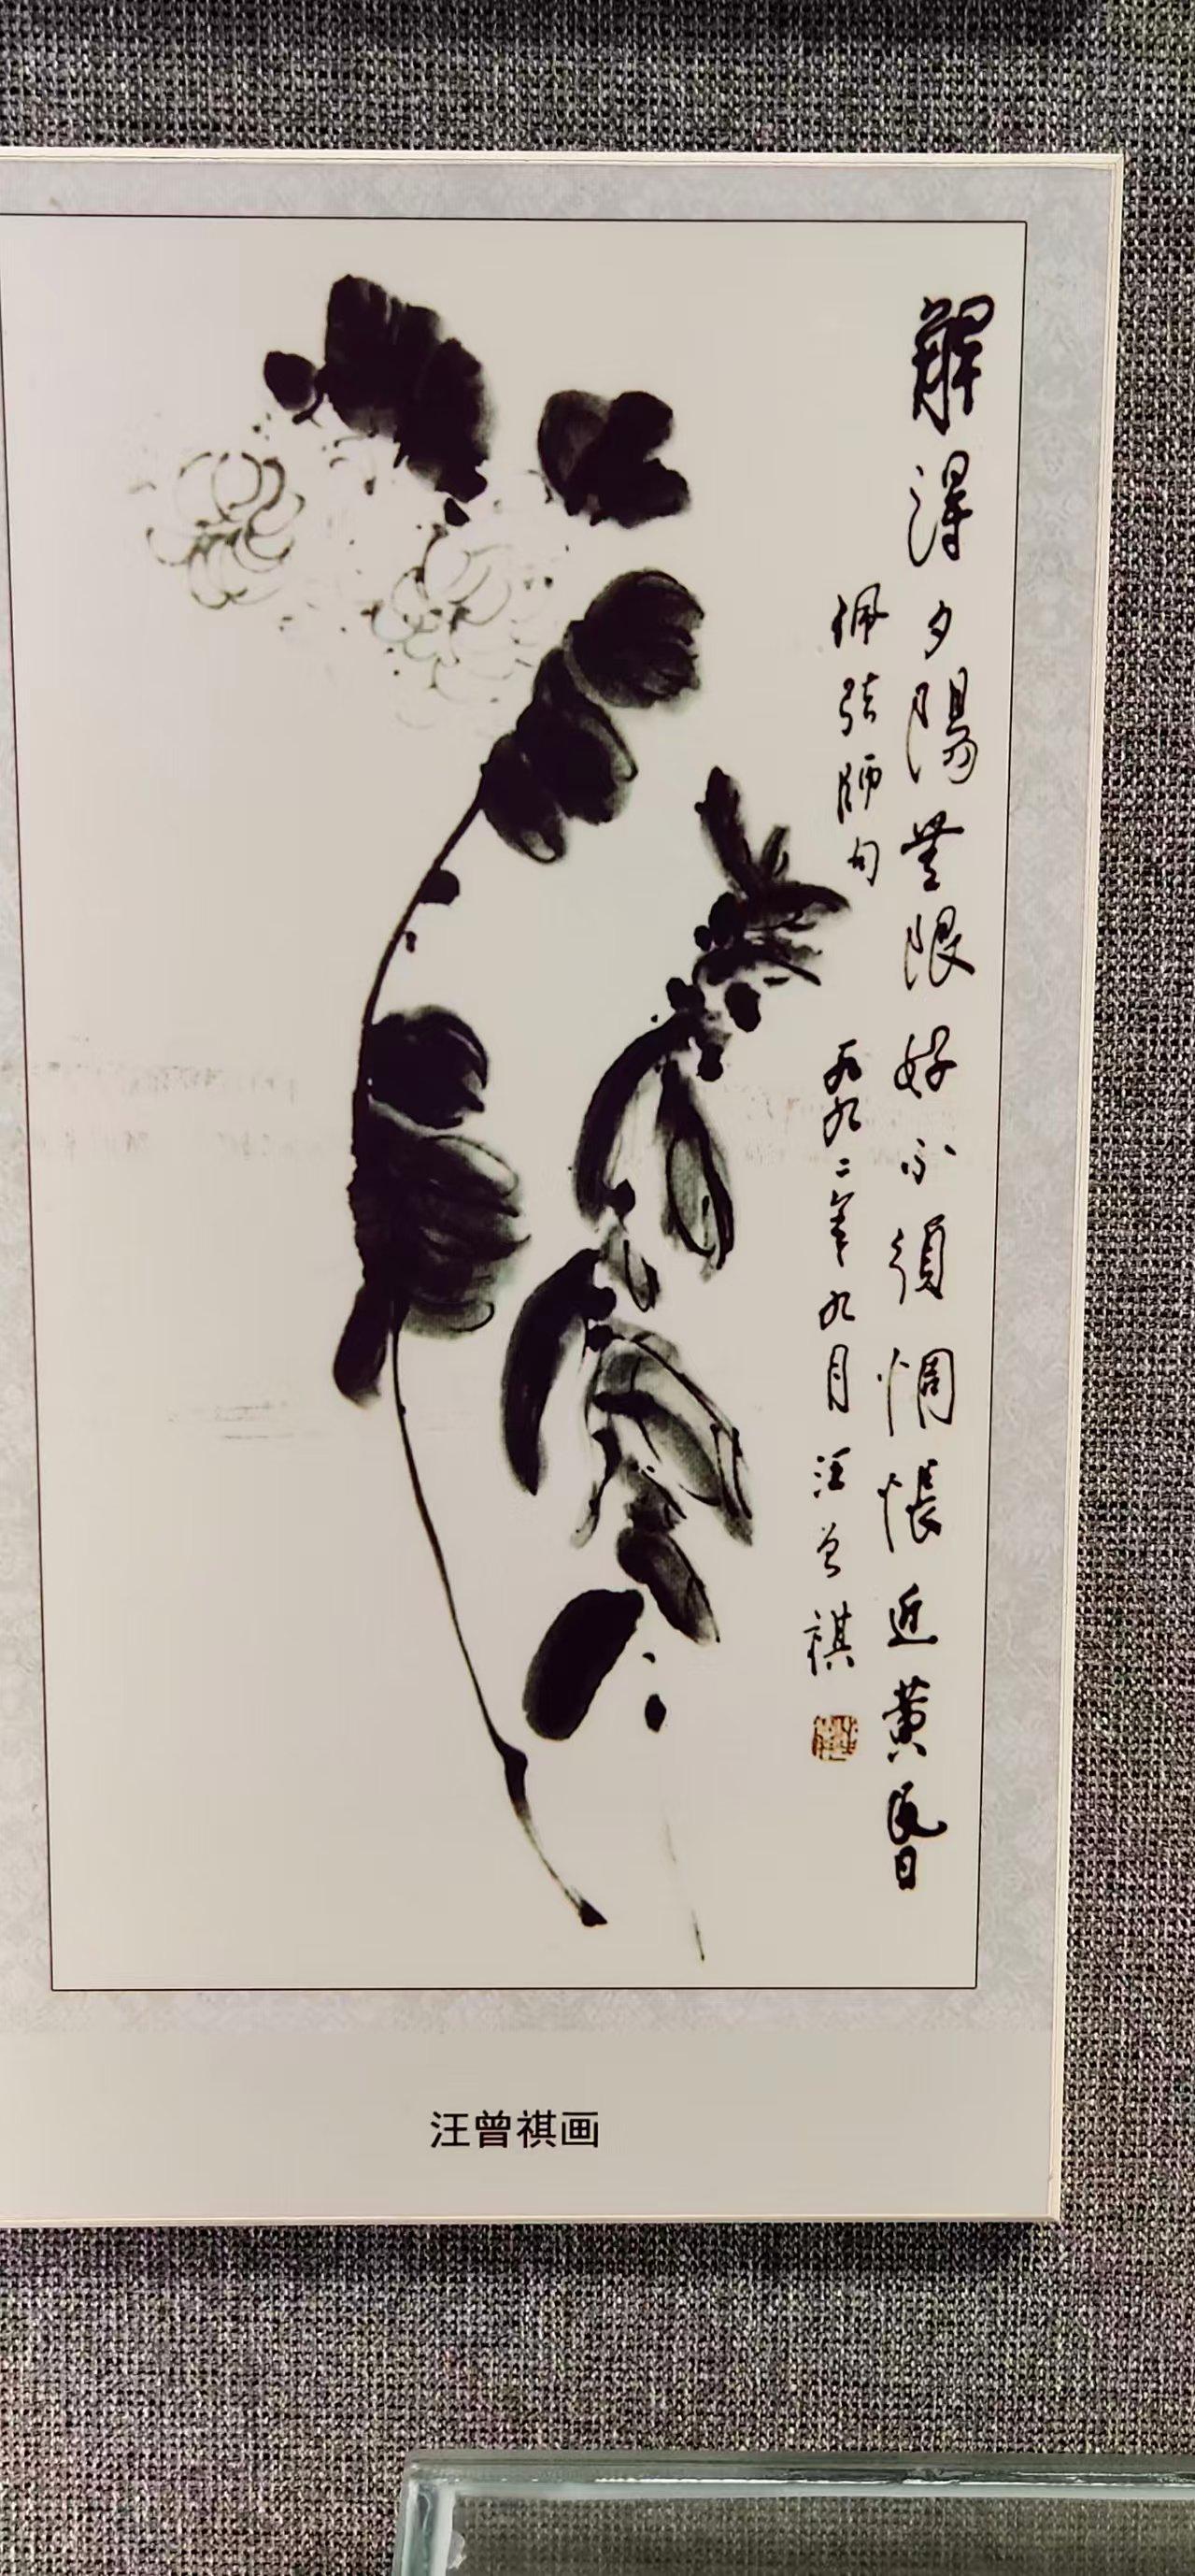 解得夕陽無限好不須惆悵近黄昏
佩弦師句
一九九二年九月汪曾祺
汪曾祺画